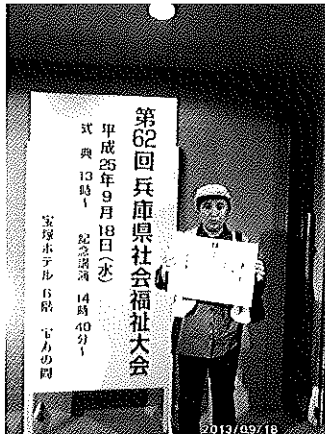 第62回 兵庫県社会福祉大会
平成25年9月18日(水)
式典 13時～ 記念講演 14時40分～
宝塚ホテル 6階 宝寿の間
2013/09/18